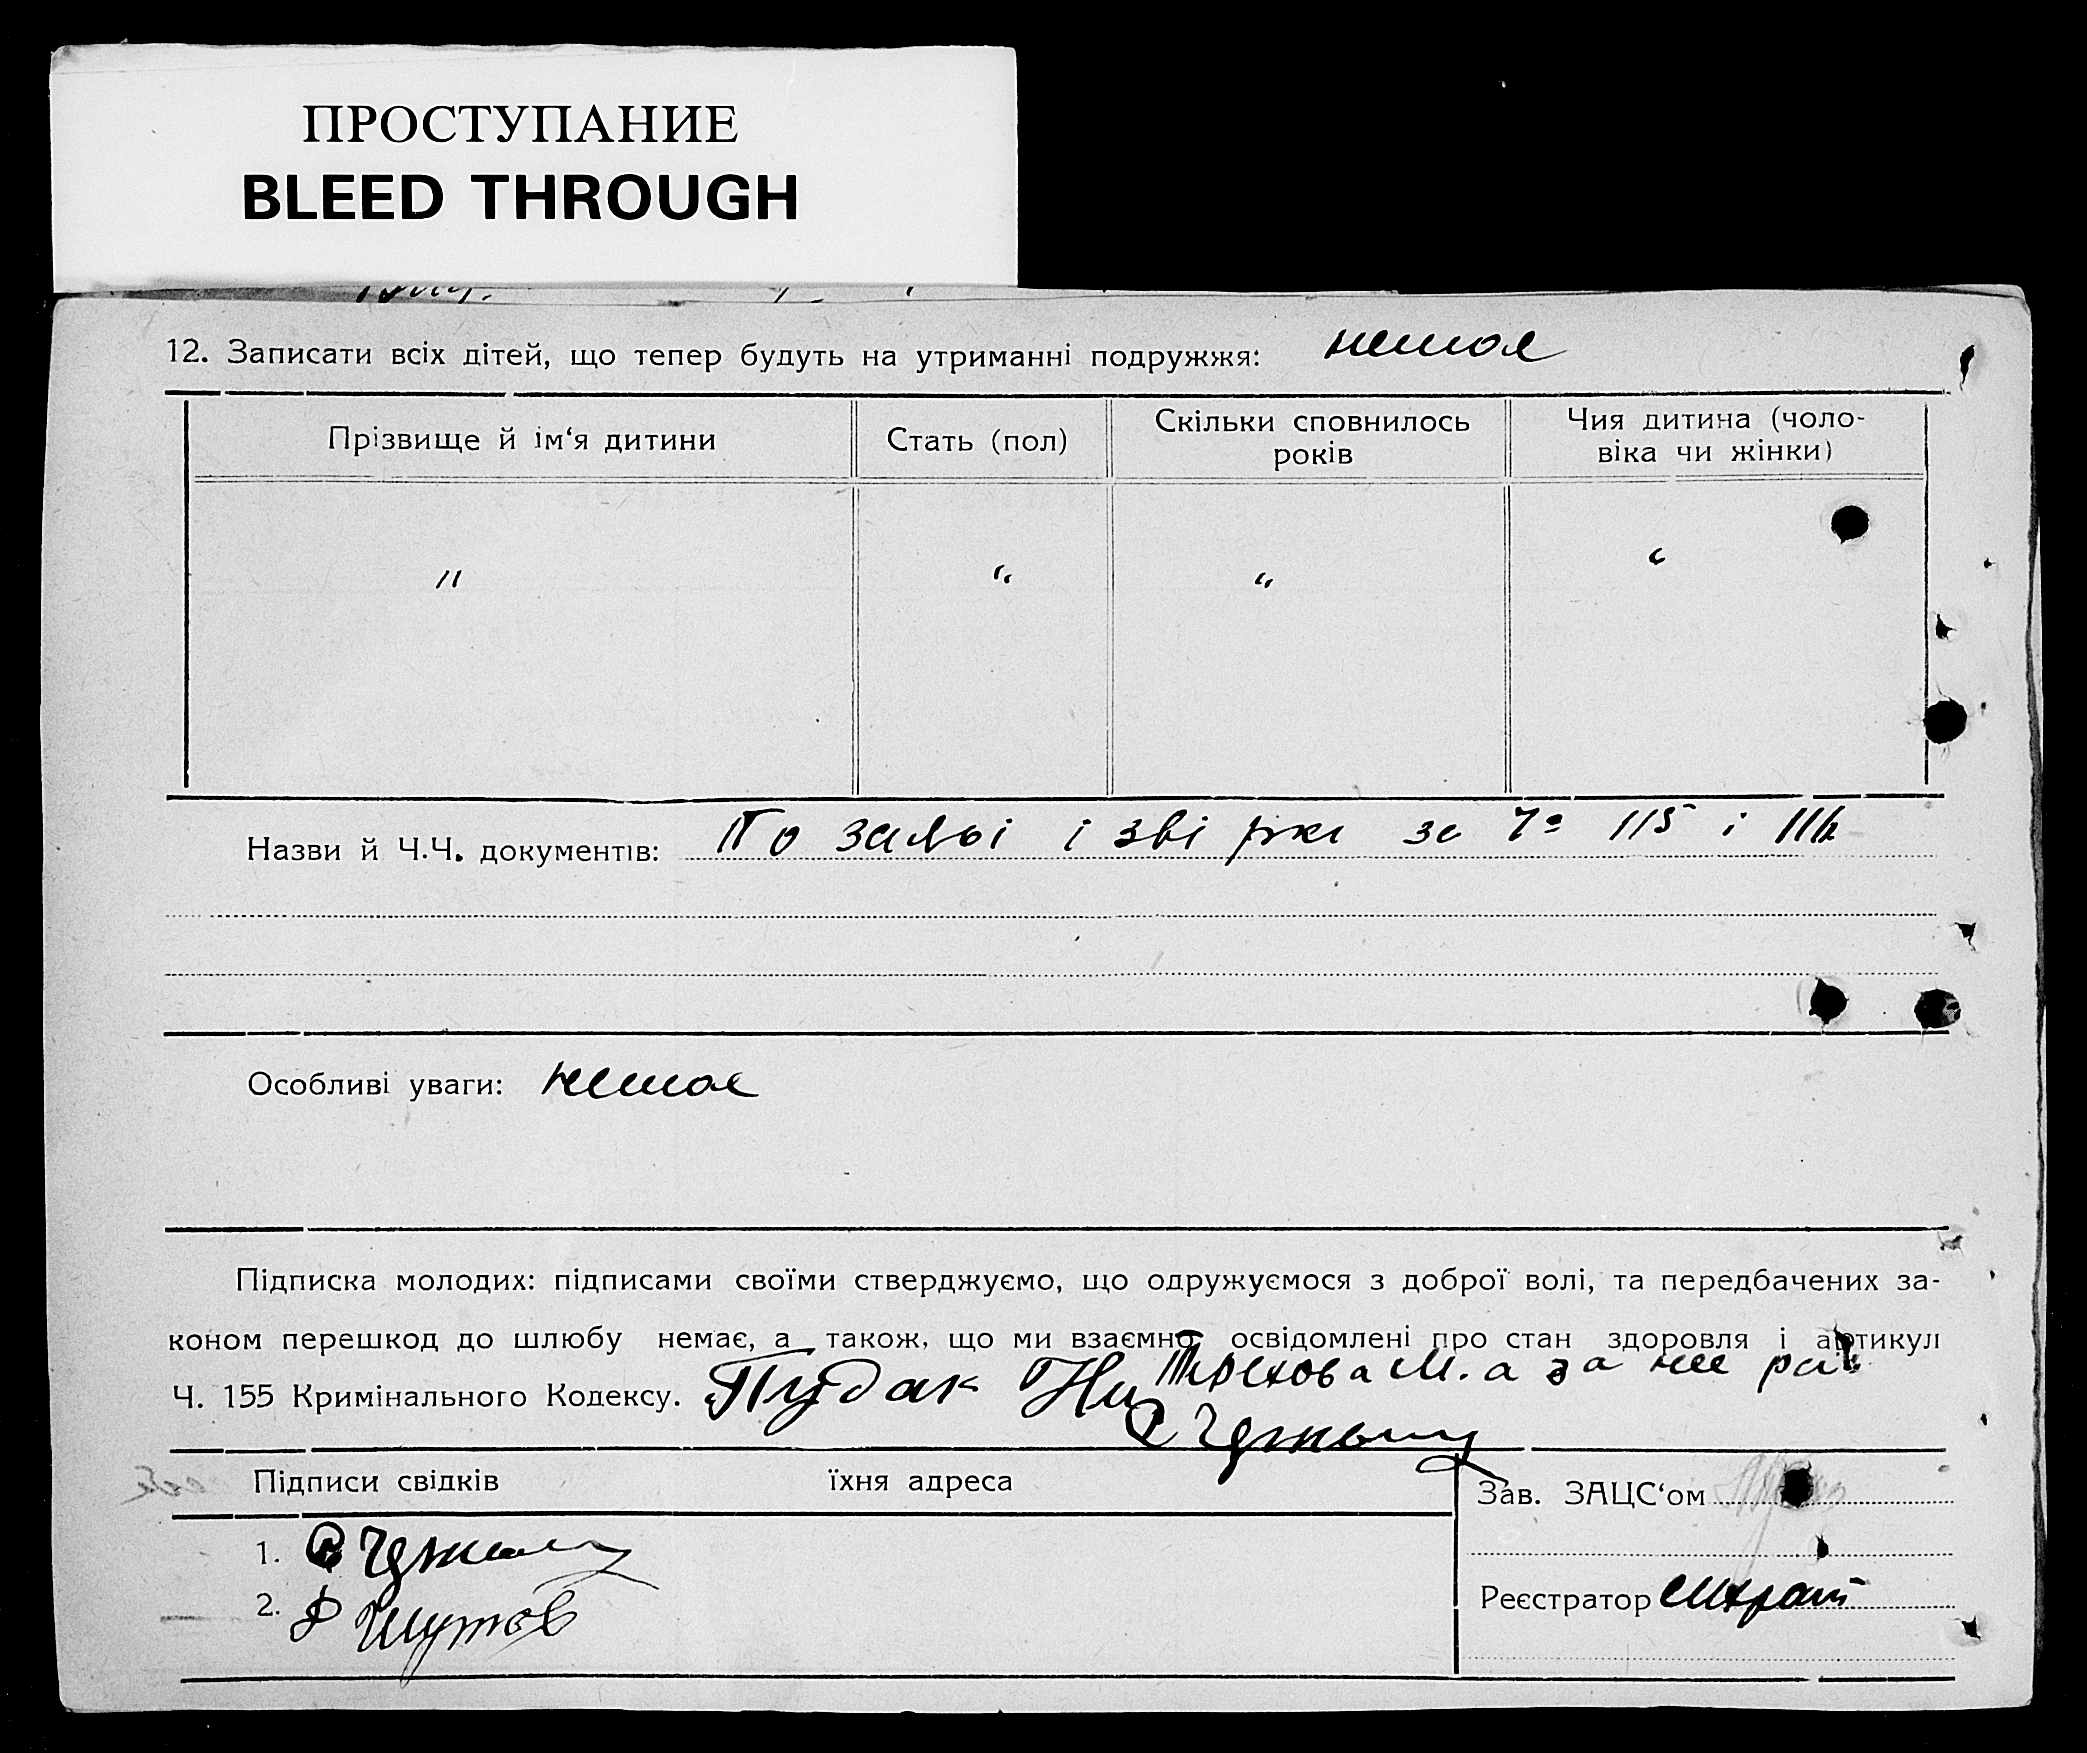 ПРОСТУПАНИЕ
BLEED THROUGH
12. Записати всіх дітей, що тепер будуть на утриманні подружжя: немає
Прізвище й ім‘я дитини
Стать (пол)
Скільки сповнилось
років
Чия дитина (чоло-
віка чи жінки)
" " " "
Назви й Ч.Ч. документів: По заяві і звірка за 115 і 116
Особливі уваги: немає
Підписка молодих: підписами своїми стверджуємо, що одружуємося з доброї волі, та передбачених за-
коном перешкод до шлюбу немає, а також, що ми взаємно освідомлені про стан здоровля і артикул
Ч. 155 Кримінального Кодексу. Пудак Ни
Терехова М. а за нее
Підписи свідків їхня адреса
Зав. ЗАЦС‘ом
1.
2. Шутов
Реєстратор